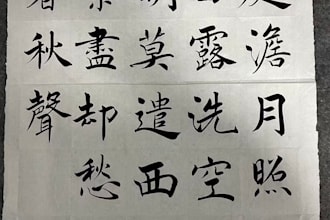 澹月照
露洗空
明莫遣西
盡却愁
著秋聲